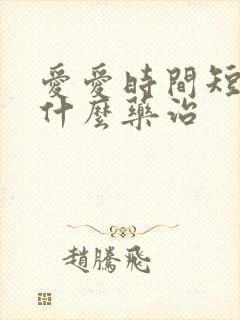 愛愛時間短
什麼藥治
趙騰飛